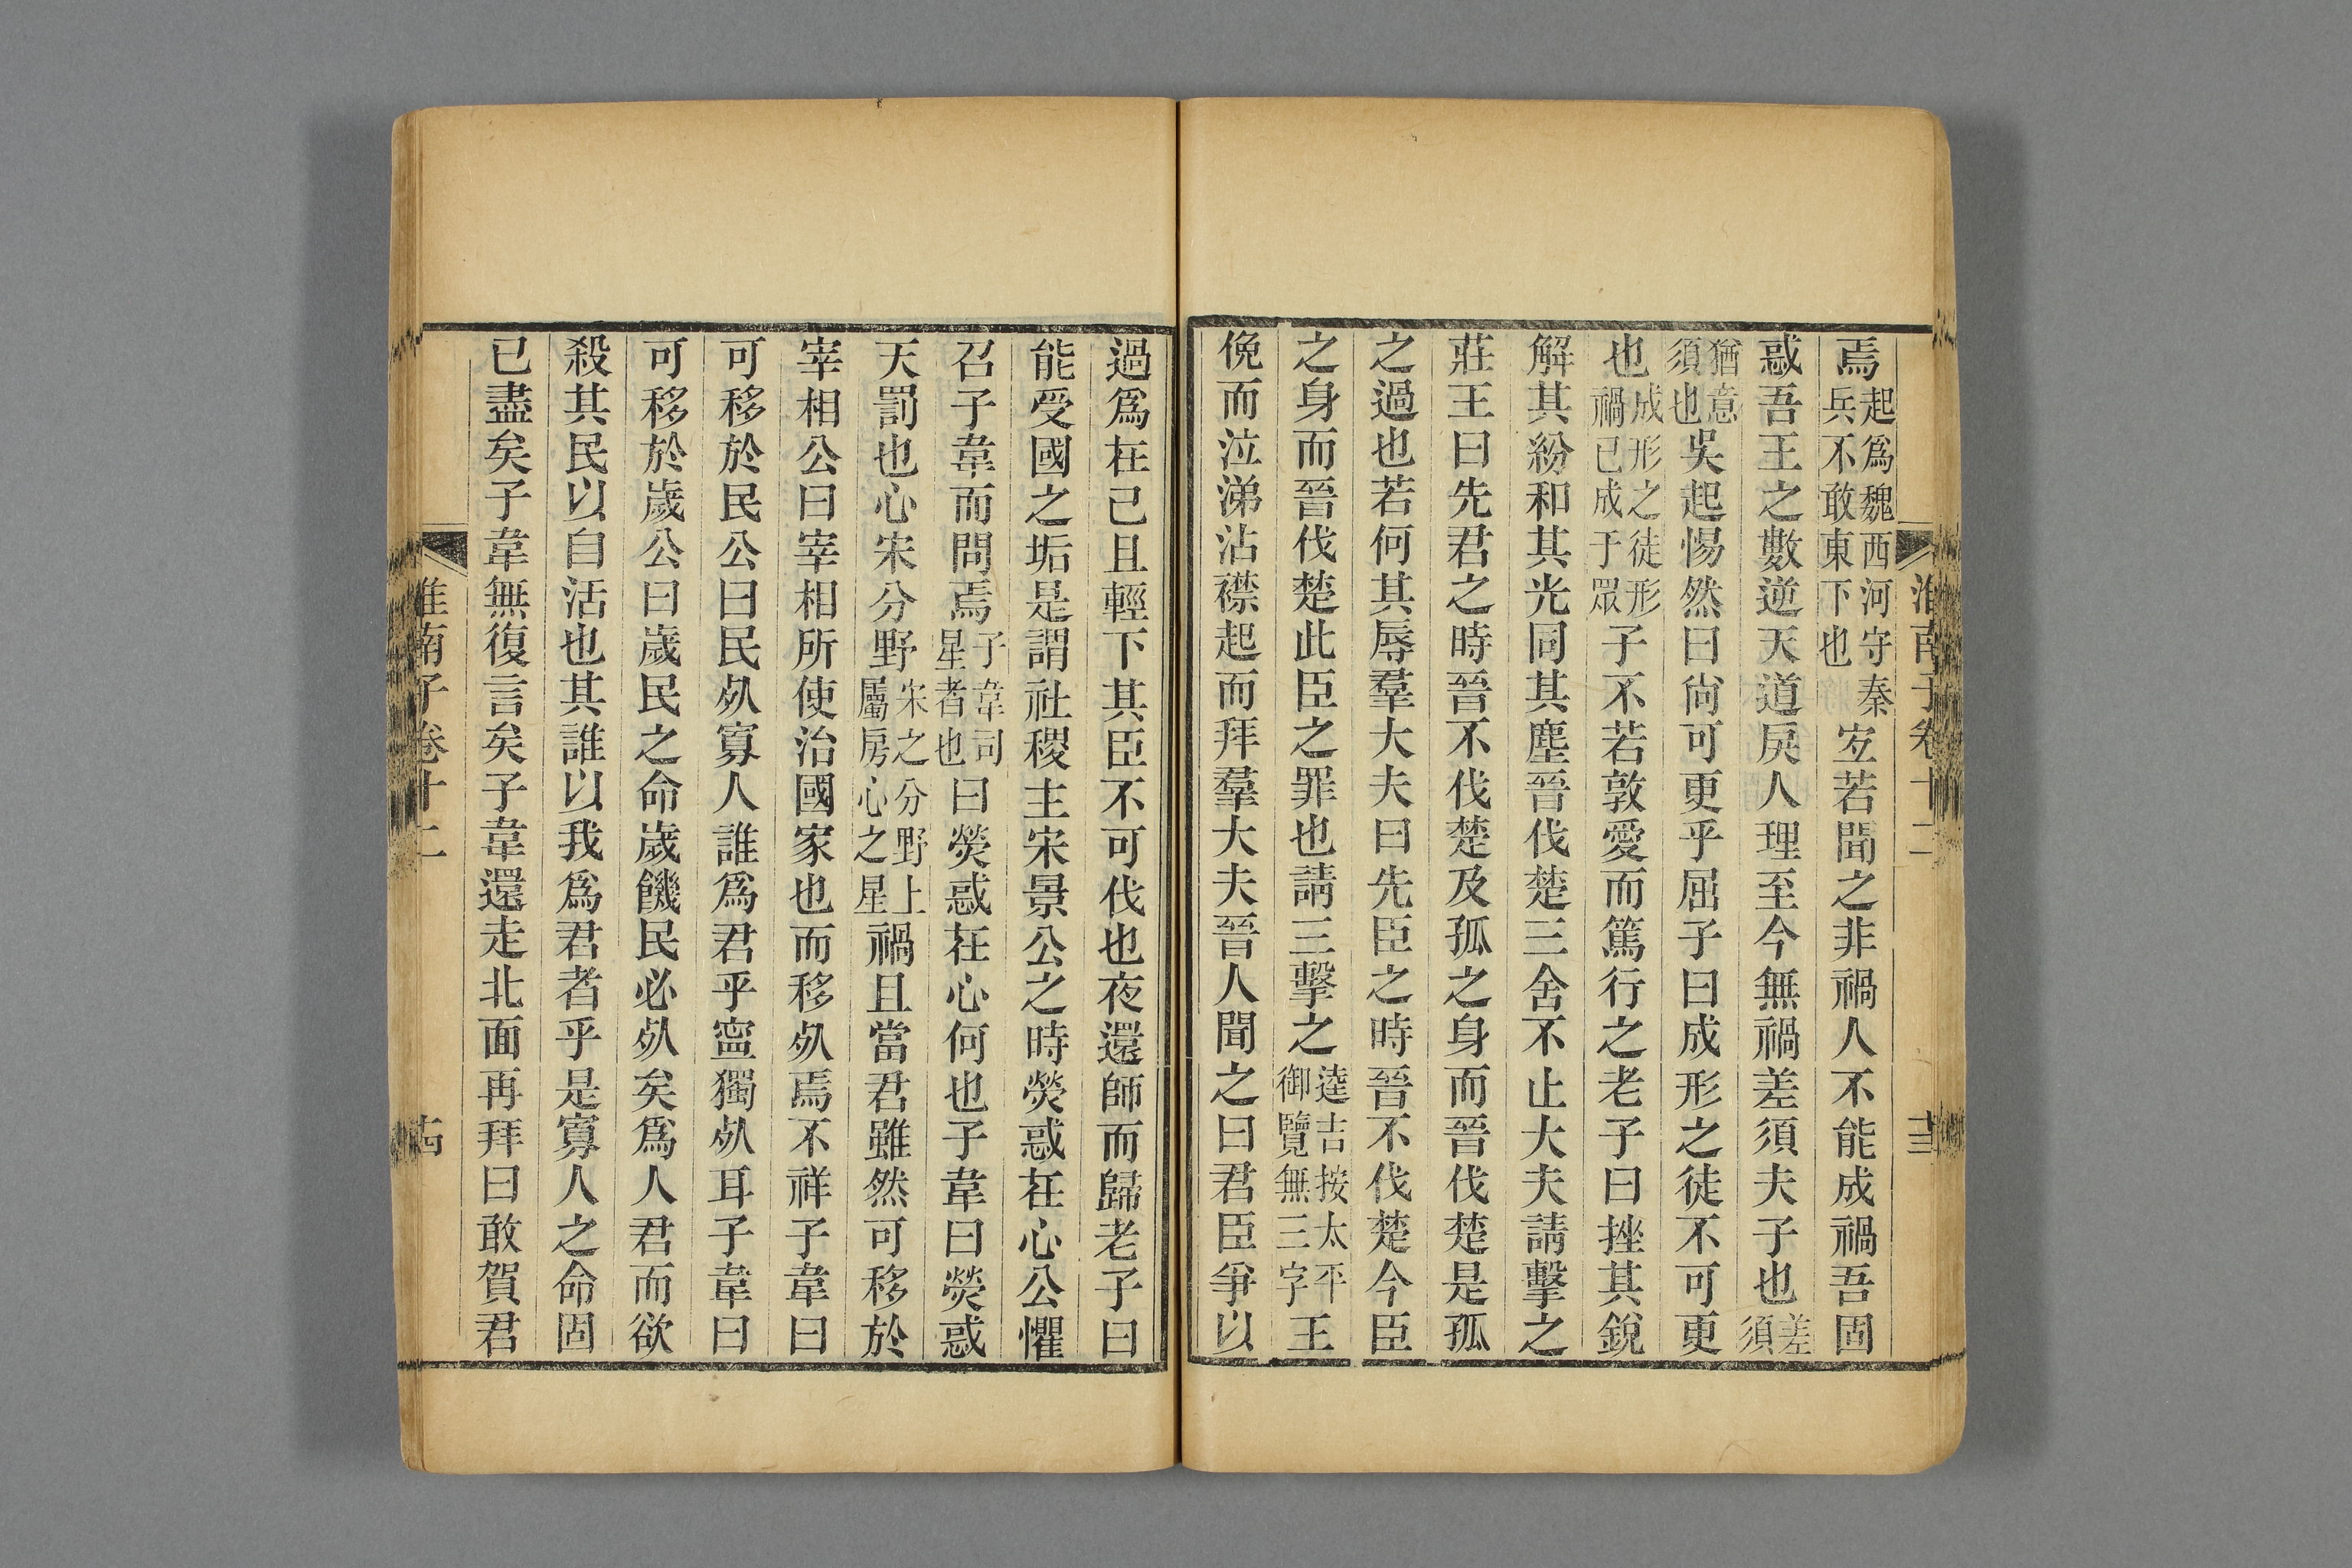 淮南子卷十二 十三
焉起爲魏西河守秦兵不敢東下也宐若聞之非禍人不能成禍吾固
惑吾王之數逆天道戾人理至今無禍差須夫子也差須
猶意須也吳起惕然曰尙可更乎屈子曰成形之徒不可更
也成形之徒形禍已成于眾子不若敦愛而篤行之老子曰挫其銳
解其紛和其光同其塵晉伐楚三舍不止大夫請擊之
莊王曰先君之時晉不伐楚及孤之身而晉伐楚是孤
之過也若何其辱羣大夫曰先臣之時晉不伐楚今臣
之身而晉伐楚此臣之罪也請三擊之逵吉按太平御覽無三字王
俛而泣涕沾襟起而拜羣大夫晉人聞之曰君臣爭以
過爲在己且輕下其臣不可伐也夜還師而歸老子曰
能受國之垢是謂社稷主宋景公之時熒惑在心公懼
召子韋而問焉子韋司星者也曰熒惑在心何也子韋曰熒惑
天罰也心宋分野宋之分野上屬房心之星禍且當君雖然可移於
宰相公曰宰相所使治國家也而移𣦸焉不祥子韋曰
可移於民公曰民𣦸寡人誰爲君乎寍獨𣦸耳子韋曰
可移於歲公曰歲民之命歲饑民必𣦸矣爲人君而欲
殺其民以自活也其誰以我爲君者乎是寡人之命固
已盡矣子韋無復言矣子韋還走北面再拜曰敢賀君
淮南子卷十二 十四